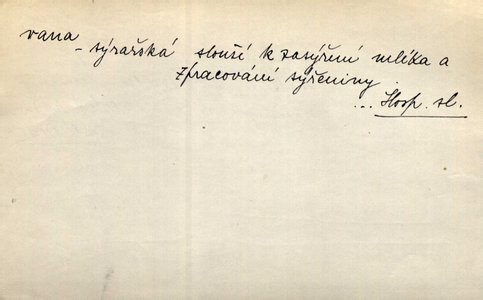 vana
- sýrařská slouží k zasýření mléka a
zpracování sýřeniny.
... Hosp. sl.